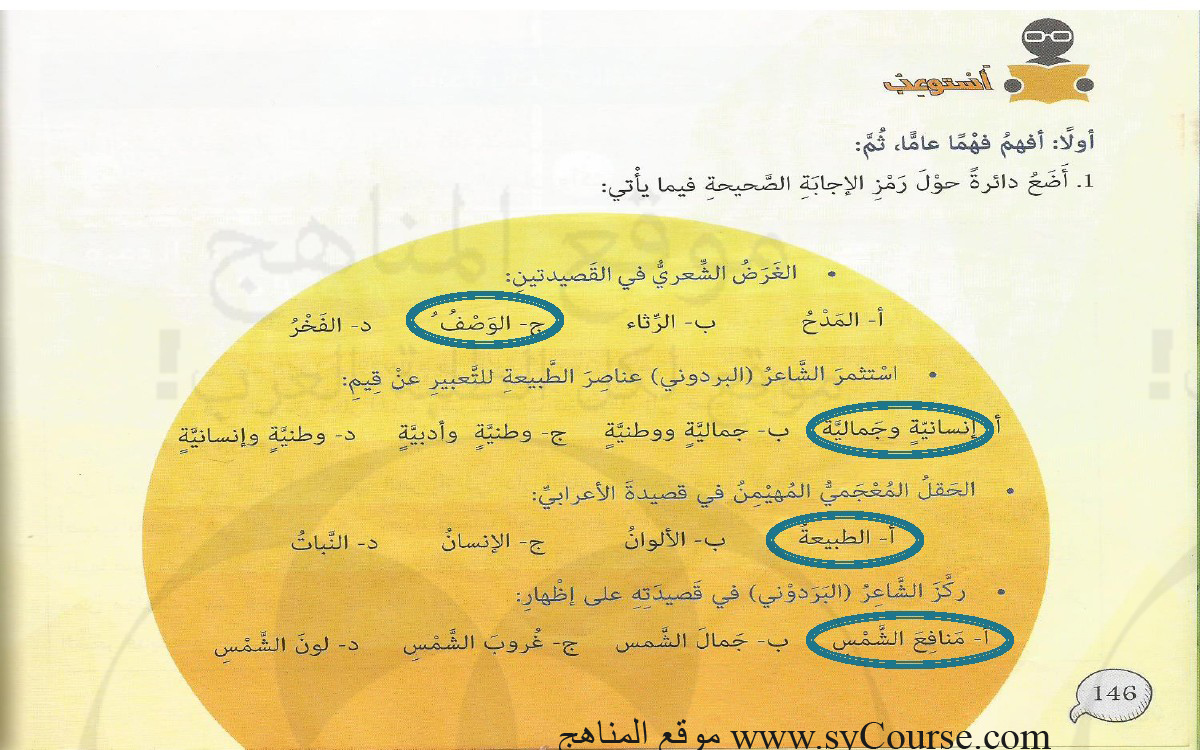 أَسْتوعِبُ
أولًا: أفهمُ فهْمًا عامًّا، ثُمَّ:
1. أَضَعُ دائرةً حوْلَ رَمْزِ الإجابَةِ الصَّحيحةِ فيما يأْتي:
موقع المناهج
• الغَرَضُ الشِّعريُّ في القَصيدتينِ:
أ- المَدْحُ ب- الرِّثاء ج- الوَصْفُ د- الفَخْرُ
• اسْتثمرَ الشَّاعرُ (البردوني) عناصِرَ الطَّبيعةِ للتَّعبيرِ عنْ قِيمِ:
أ إنسانيّةٍ وجَماليَّة ب- جماليَّةٍ ووطنيَّةٍ ج- وطنيَّةٍ وأدبيَّةٍ د- وطنيَّةٍ وإنسانيَّةٍ
• الحَقلُ المُعْجَميُّ المُهيْمِنُ في قصيدةَ الأعرابيِّ:
أ- الطبيعةُ ب- الألوانُ ج- الإنسانُ د- النَّباتُ
• ركَّزَ الشَّاعِرُ (البَرَدوْني) في قَصيدَتِهِ على إظْهارِ:
أ- مَنافِعَ الشَّمْسِ ب- جَمالَ الشَّمس ج- غُروبَ الشَّمْسِ د- لونَ الشَّمْسِ
146
موقع المناهج www.syCourse.com